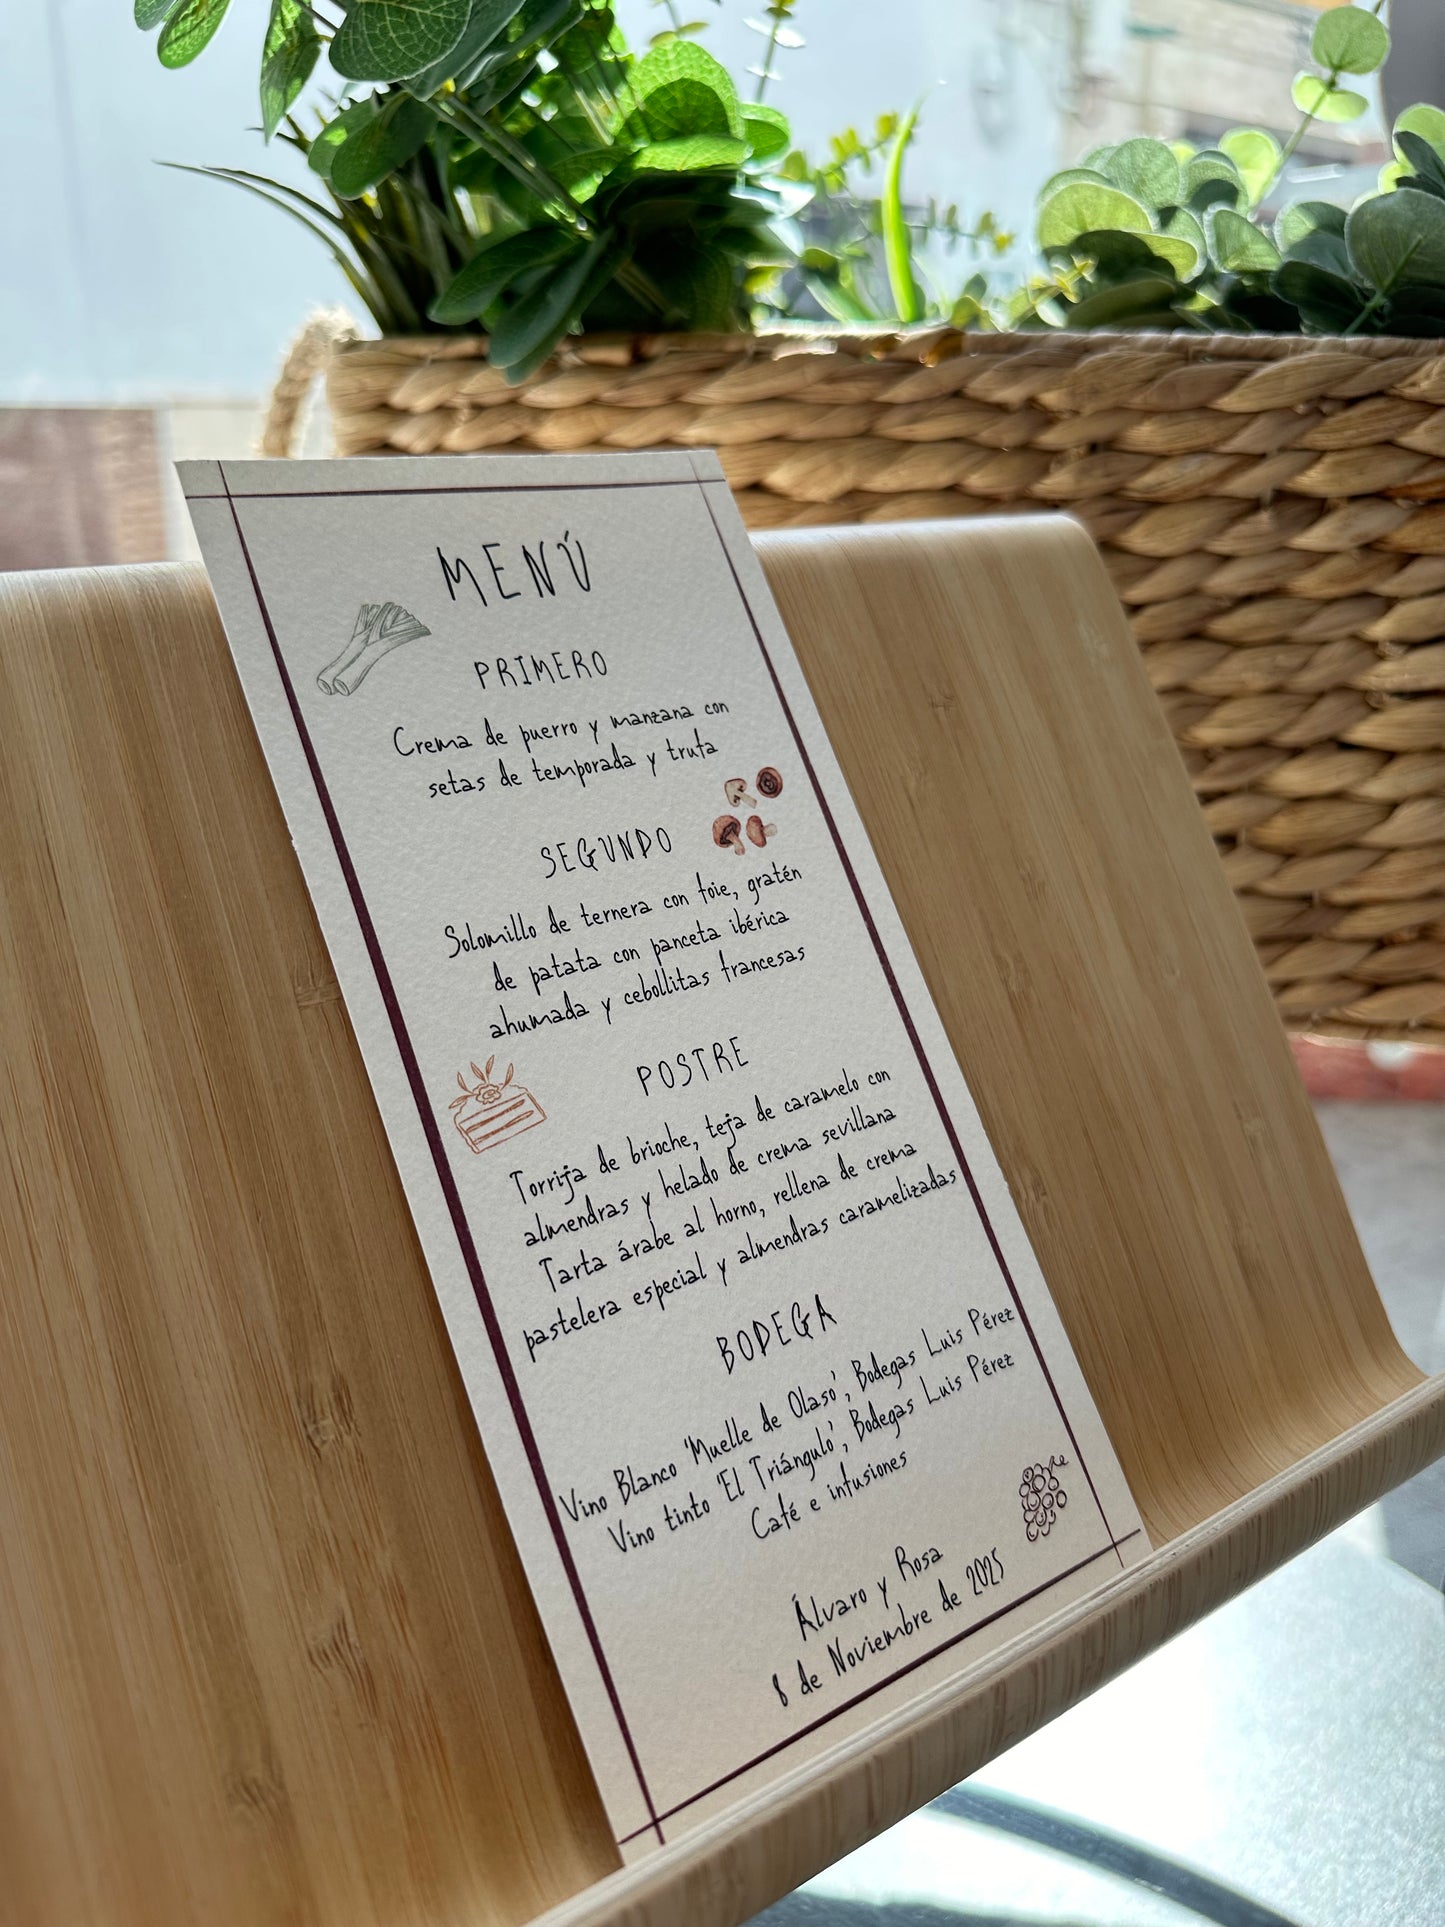 MENÚ
PRIMERO
Crema de puerro y manzana con
setas de temporada y trufa
SEGUNDO
Solomillo de ternera con foie, gratén
de patata con panceta ibérica
ahumada y cebollitas francesas
POSTRE
Torrija de brioche, teja de caramelo con
almendras y helado de crema sevillana
Tarta árabe al horno, rellena de crema
pastelera especial y almendras caramelizadas
BODEGA
Vino Blanco 'Muelle de Olaso', Bodegas Luis Pérez
Vino tinto 'El Triángulo', Bodegas Luis Pérez
Café e infusiones
Álvaro y Rosa
8 de Noviembre de 2025